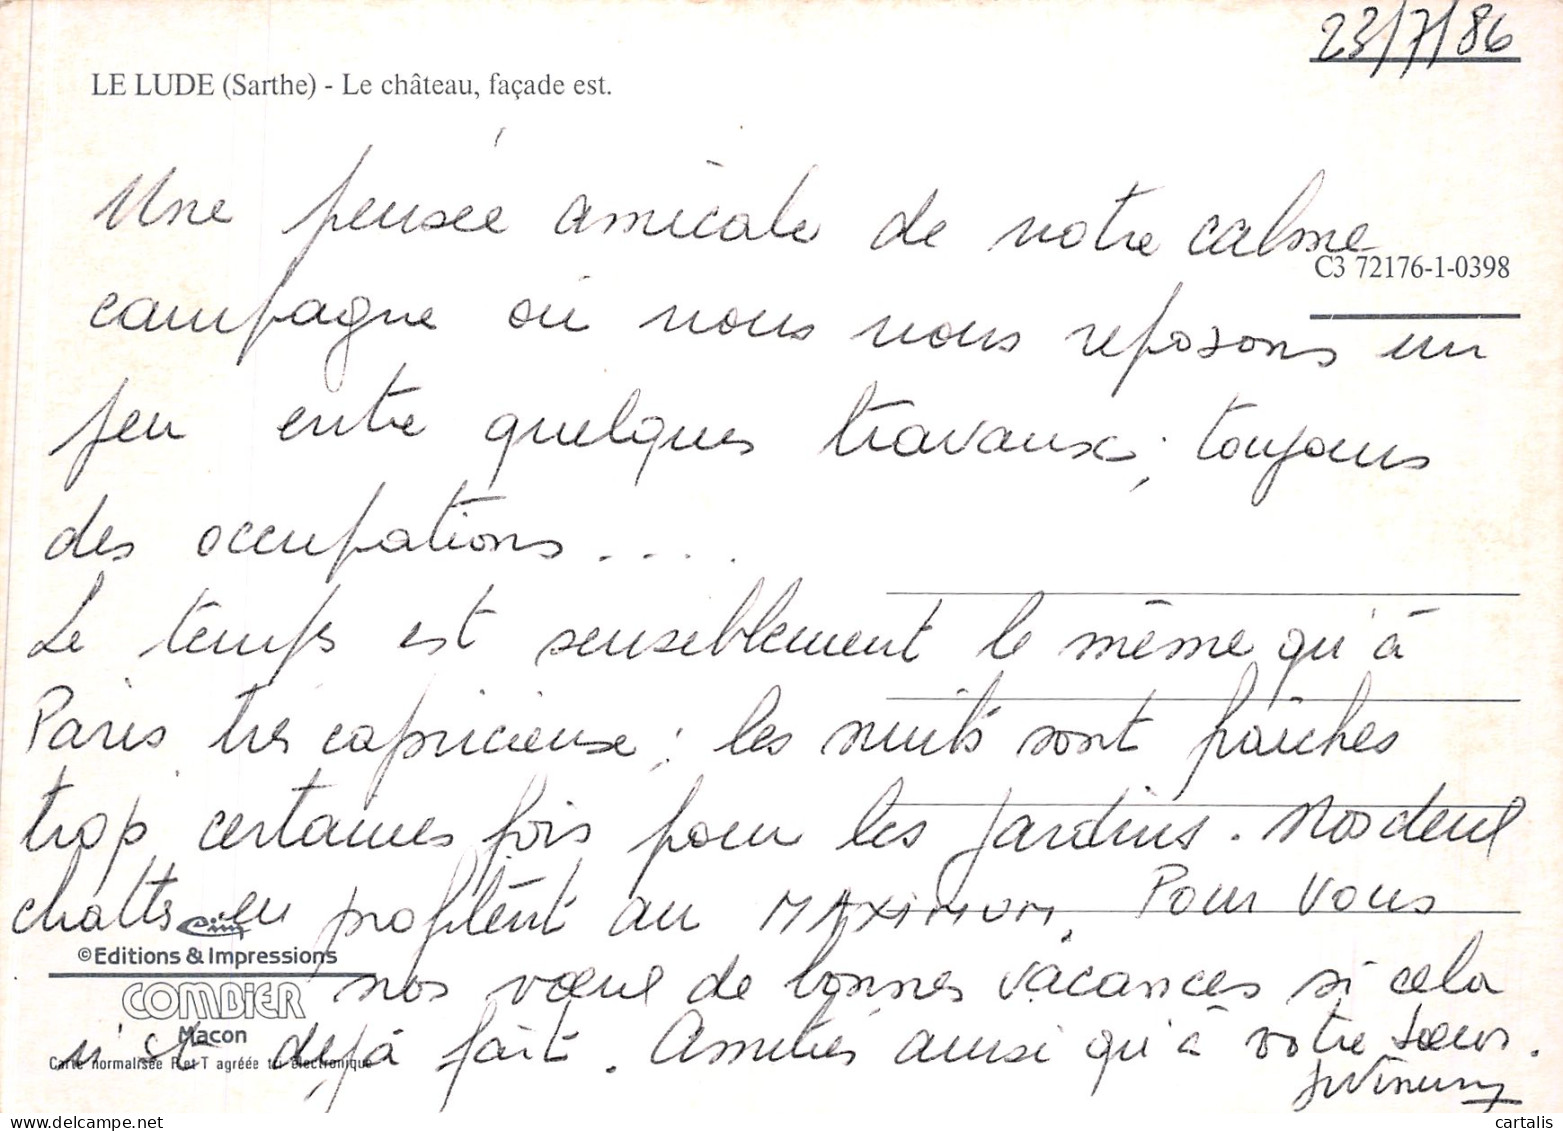 23/7/86
LE LUDE (Sarthe) - Le château, façade est.
Une pensée amicale de notre calme
C3 72176-1-0398
campagne où nous nous reposons un
peu entre quelques travaux ; toujours
des occupations ....
Le temps est sensiblement le même qu'à
Paris très capricieux ; les nuits sont fraîches
trop certaines fois pour les jardins. Nos deux
chatts en profitent au MAXIMUM. Pour vous
©Editions & Impressions
COMBIER
nos vœux de bonnes vacances si cela
Macon
n'est déjà fait. Amitiés ainsi qu'à votre sœur.
Carte normalisée P et T agréée tri électronique
cartalis